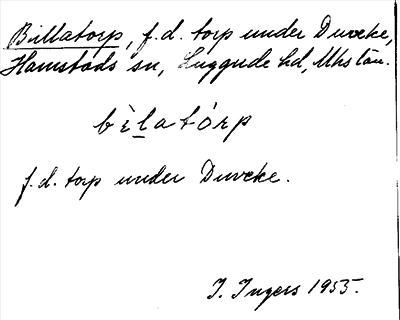 Billatorp, f.d. torp under Duveke,
Hamstads sn, Luggude hd, Mhs län.
bèlatórp
f.d. torp under Duveke.
I. Ingers 1955.